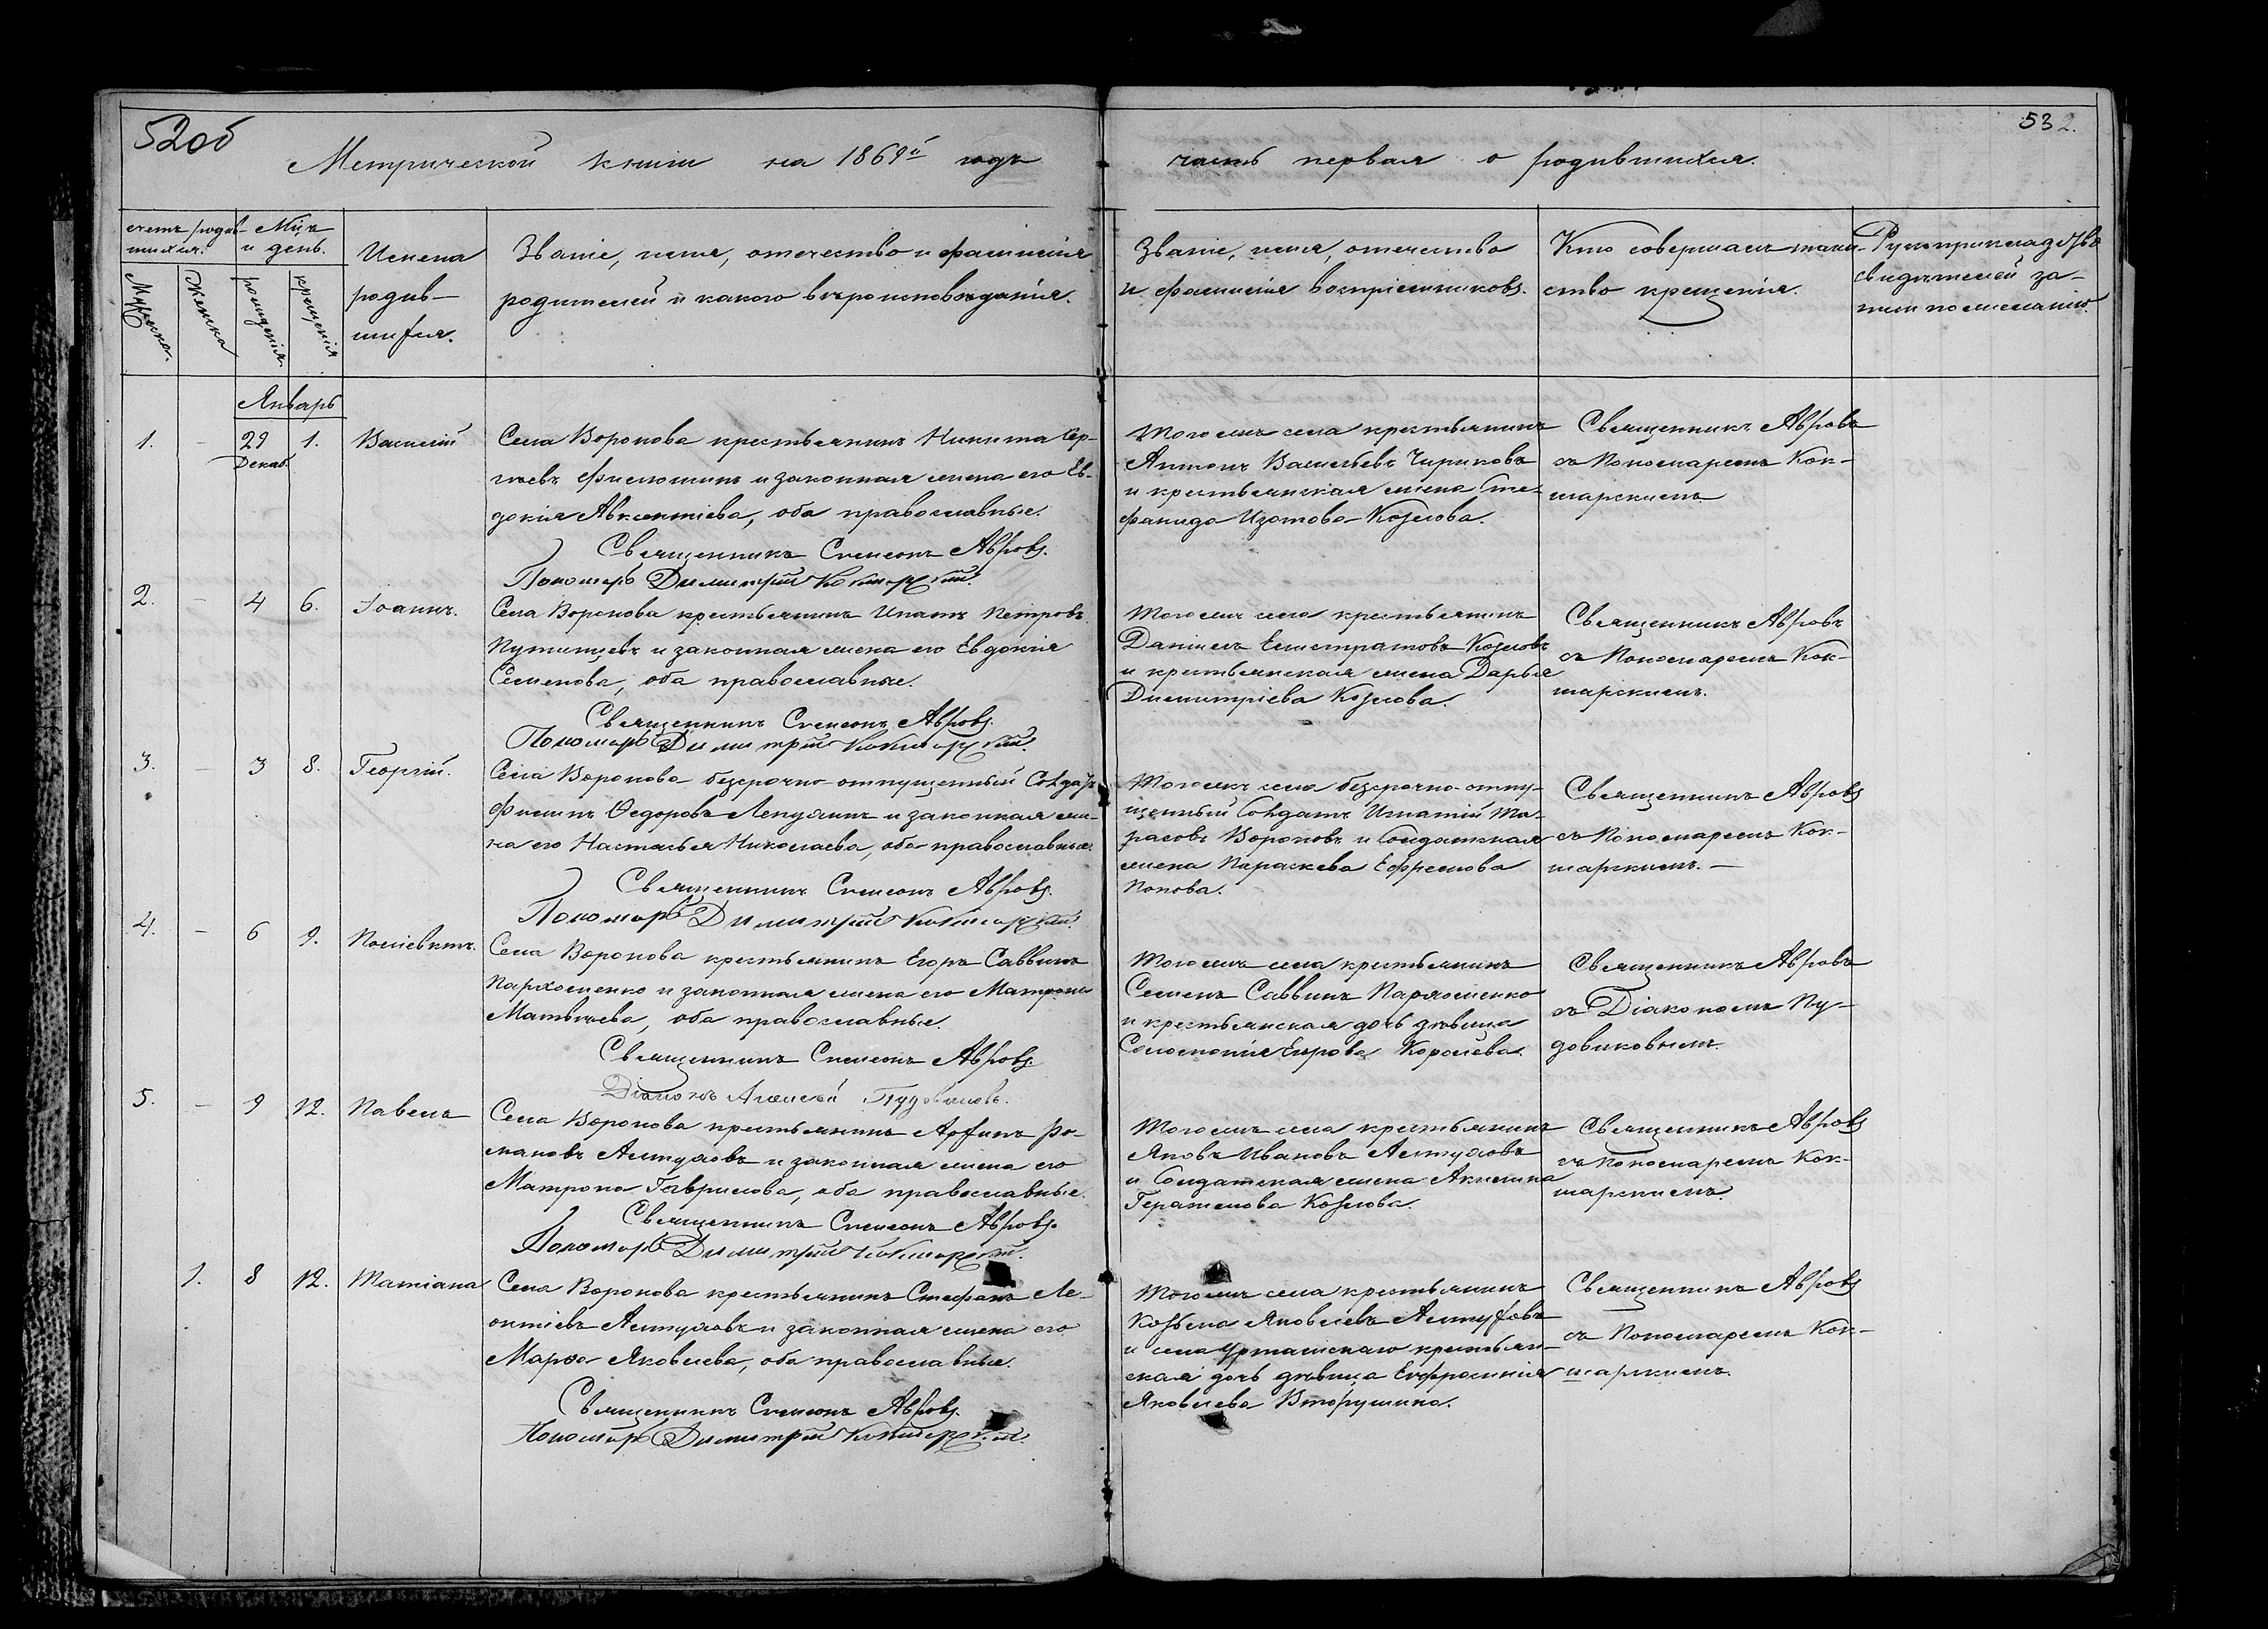 52об
532.
Метрической книги на 1869й годъ
часть первая о родившихся.
счетъ родив-
шихся.
Мужска.
Женска
Мцъ
и день.
рожденія
крещенія
Имена
родив-
шихся.
Званіе, имя, отчество и фамилія
родителей и какого вѣроисповѣданія.
Званіе, имя, отчество
и фамилія воспріемниковъ.
Кто совершалъ таин-
ство крещенія.
Рукоприкладство
свидѣтелей за-
писи по желанію.
Январь
1. - 29 1. Василій
Декаб.
Села Воронова крестьянинъ Никита Сер-
гѣевъ и законная жена его Ев-
докія Авксентіева, оба православные.
Священникъ Симеонъ Авровъ.
Пономарь Димитрій Кокшарскій.
Того жъ села крестьянинъ
Антонъ Васильевъ Чириковъ
и крестьянская жена Сте-
фанида Изотова Козлова.
Священникъ Авровъ
съ Пономаремъ Кок-
шарскимъ.
2. - 4 6. Іоаннъ.
Села Воронова крестьянинъ Ипатъ Петровъ
Путинцевъ и законная жена его Евдокія
Семенова, оба православные.
Священникъ Симеонъ Авровъ.
Пономарь Димитрій Кокшарскій.
Того жъ села крестьянинъ
Даніилъ Елистратовъ Козловъ
и крестьянская жена Дарья
Димитріева Козлова.
Священникъ Авровъ
съ Пономаремъ Кок-
шарскимъ.
3. - 3 8. Георгій.
Села Воронова безсрочно-отпущенный Солдатъ
Филипъ Ѳедоровъ и законная же-
на его Настасья Николаева, оба православные.
Священникъ Симеонъ Авровъ.
Пономарь Димитрій Кокшарскій.
Того жъ села безсрочно-отпу-
щенный Солдатъ Игнатій Та-
расовъ Вороновъ и Солдатская
жена Параскева Ефремова
Попова.
Священникъ Авровъ
съ Пономаремъ Кок-
шарскимъ. -
4. - 6 9. Поліевктъ.
Села Воронова крестьянинъ Егоръ Саввинъ
Пархоменко и законная жена его Матрона
Матвѣева, оба православные.
Священникъ Симеонъ Авровъ.
Діаконъ Алексѣй Пудовиковъ.
Того жъ села крестьянинъ
Семенъ Саввинъ Пархоменко
и крестьянская дочь дѣвица
Соломонія Королева.
Священникъ Авровъ
съ Діакономъ Пу-
довиковымъ.
5. - 9 12. Павелъ
Села Воронова крестьянинъ Ро-
мановъ Алтуховъ и законная жена его
Матрона Гаврилова, оба православные.
Священникъ Симеонъ Авровъ.
Пономарь Димитрій Кокшарскій.
Того жъ села крестьянинъ
Яковъ Ивановъ Алтуховъ
и Солдатская жена Акилина
Герасимова Козлова.
Священникъ Авровъ
съ Пономаремъ Кок-
шарскимъ.
1. 8 12. Татіана
Села Воронова крестьянинъ Стефанъ Ле-
онтіевъ Алтуховъ и законная жена его
Марѳа Яковлева, оба православные.
Священникъ Симеонъ Авровъ.
Пономарь Димитрій Кокшарскій.
Того жъ села крестьянинъ
Козьма Яковлевъ Алтуховъ
и села Уртамскаго крестьян-
ская дочь дѣвица Евфросинія
Яковлева Вторушина.
Священникъ Авровъ
съ Пономаремъ Кок-
шарскимъ.